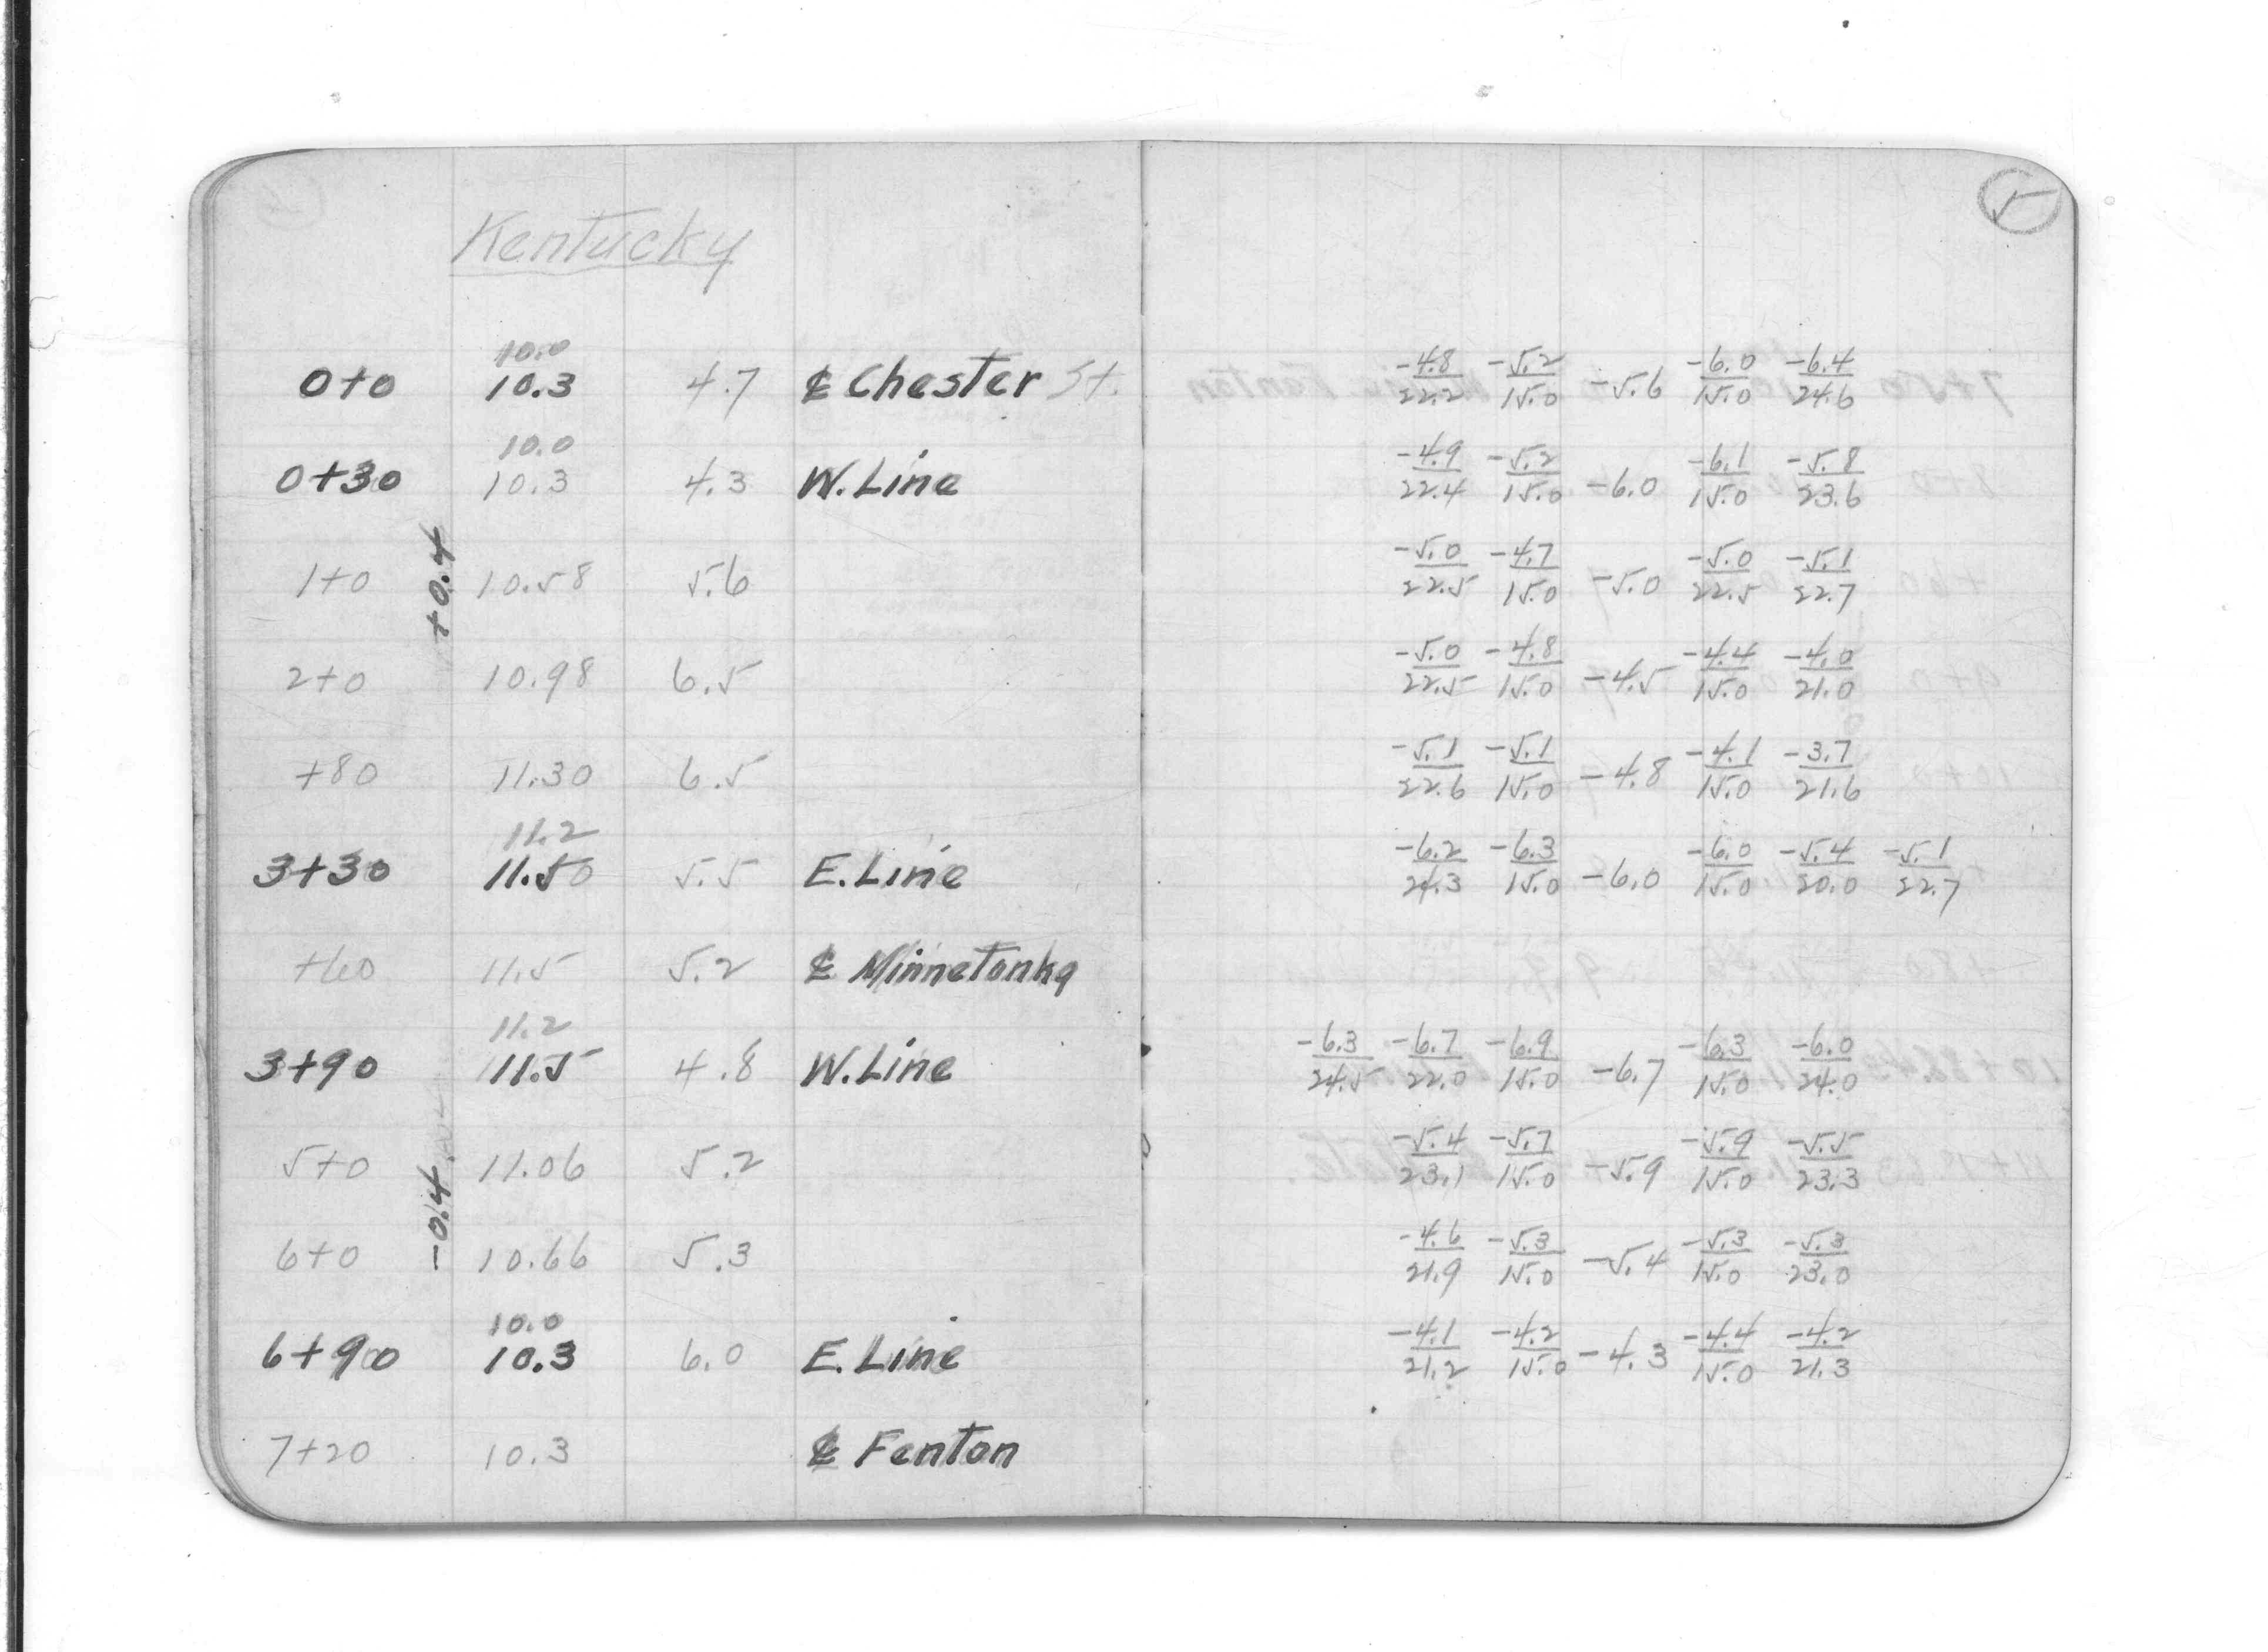 Kentucky
5
10.0
0+0 10.3 4.7 ℄ Chester St. -4.8/22.2 -5.2/15.0 -5.6 -6.0/15.0 -6.4/24.6
10.0
0+30 10.3 4.3 W. Line -4.9/22.4 -5.2/15.0 -6.0 -6.1/15.0 -5.8/23.6
+0.4
1+0 10.58 5.6 -5.0/22.5 -4.7/15.0 -5.0 -5.0/22.5 -5.1/22.7
2+0 10.98 6.5 -5.0/22.5 -4.8/15.0 -4.5 -4.4/15.0 -4.0/21.0
+80 11.30 6.5 -5.1/22.6 -5.1/15.0 -4.8 -4.1/15.0 -3.7/21.6
11.2
3+30 11.50 5.5 E. Line -6.2/24.3 -6.3/15.0 -6.0 -6.0/15.0 -5.4/20.0 -5.1/22.7
+60 11.5 5.2 ℄ Minnetonka
11.2
3+90 11.5 4.8 W. Line -6.3/24.5 -6.7/22.0 -6.9/15.0 -6.7 -6.3/15.0 -6.0/24.0
5+0 11.06 5.2 -5.4/23.1 -5.7/15.0 -5.9 -5.9/15.0 -5.5/23.3
-0.4
6+0 10.66 5.3 -4.6/21.9 -5.3/15.0 -5.4 -5.3/15.0 -5.3/23.0
10.0
6+90 10.3 6.0 E. Line -4.1/21.2 -4.2/15.0 -4.3 -4.4/15.0 -4.2/21.3
7+20 10.3 ℄ Fenton